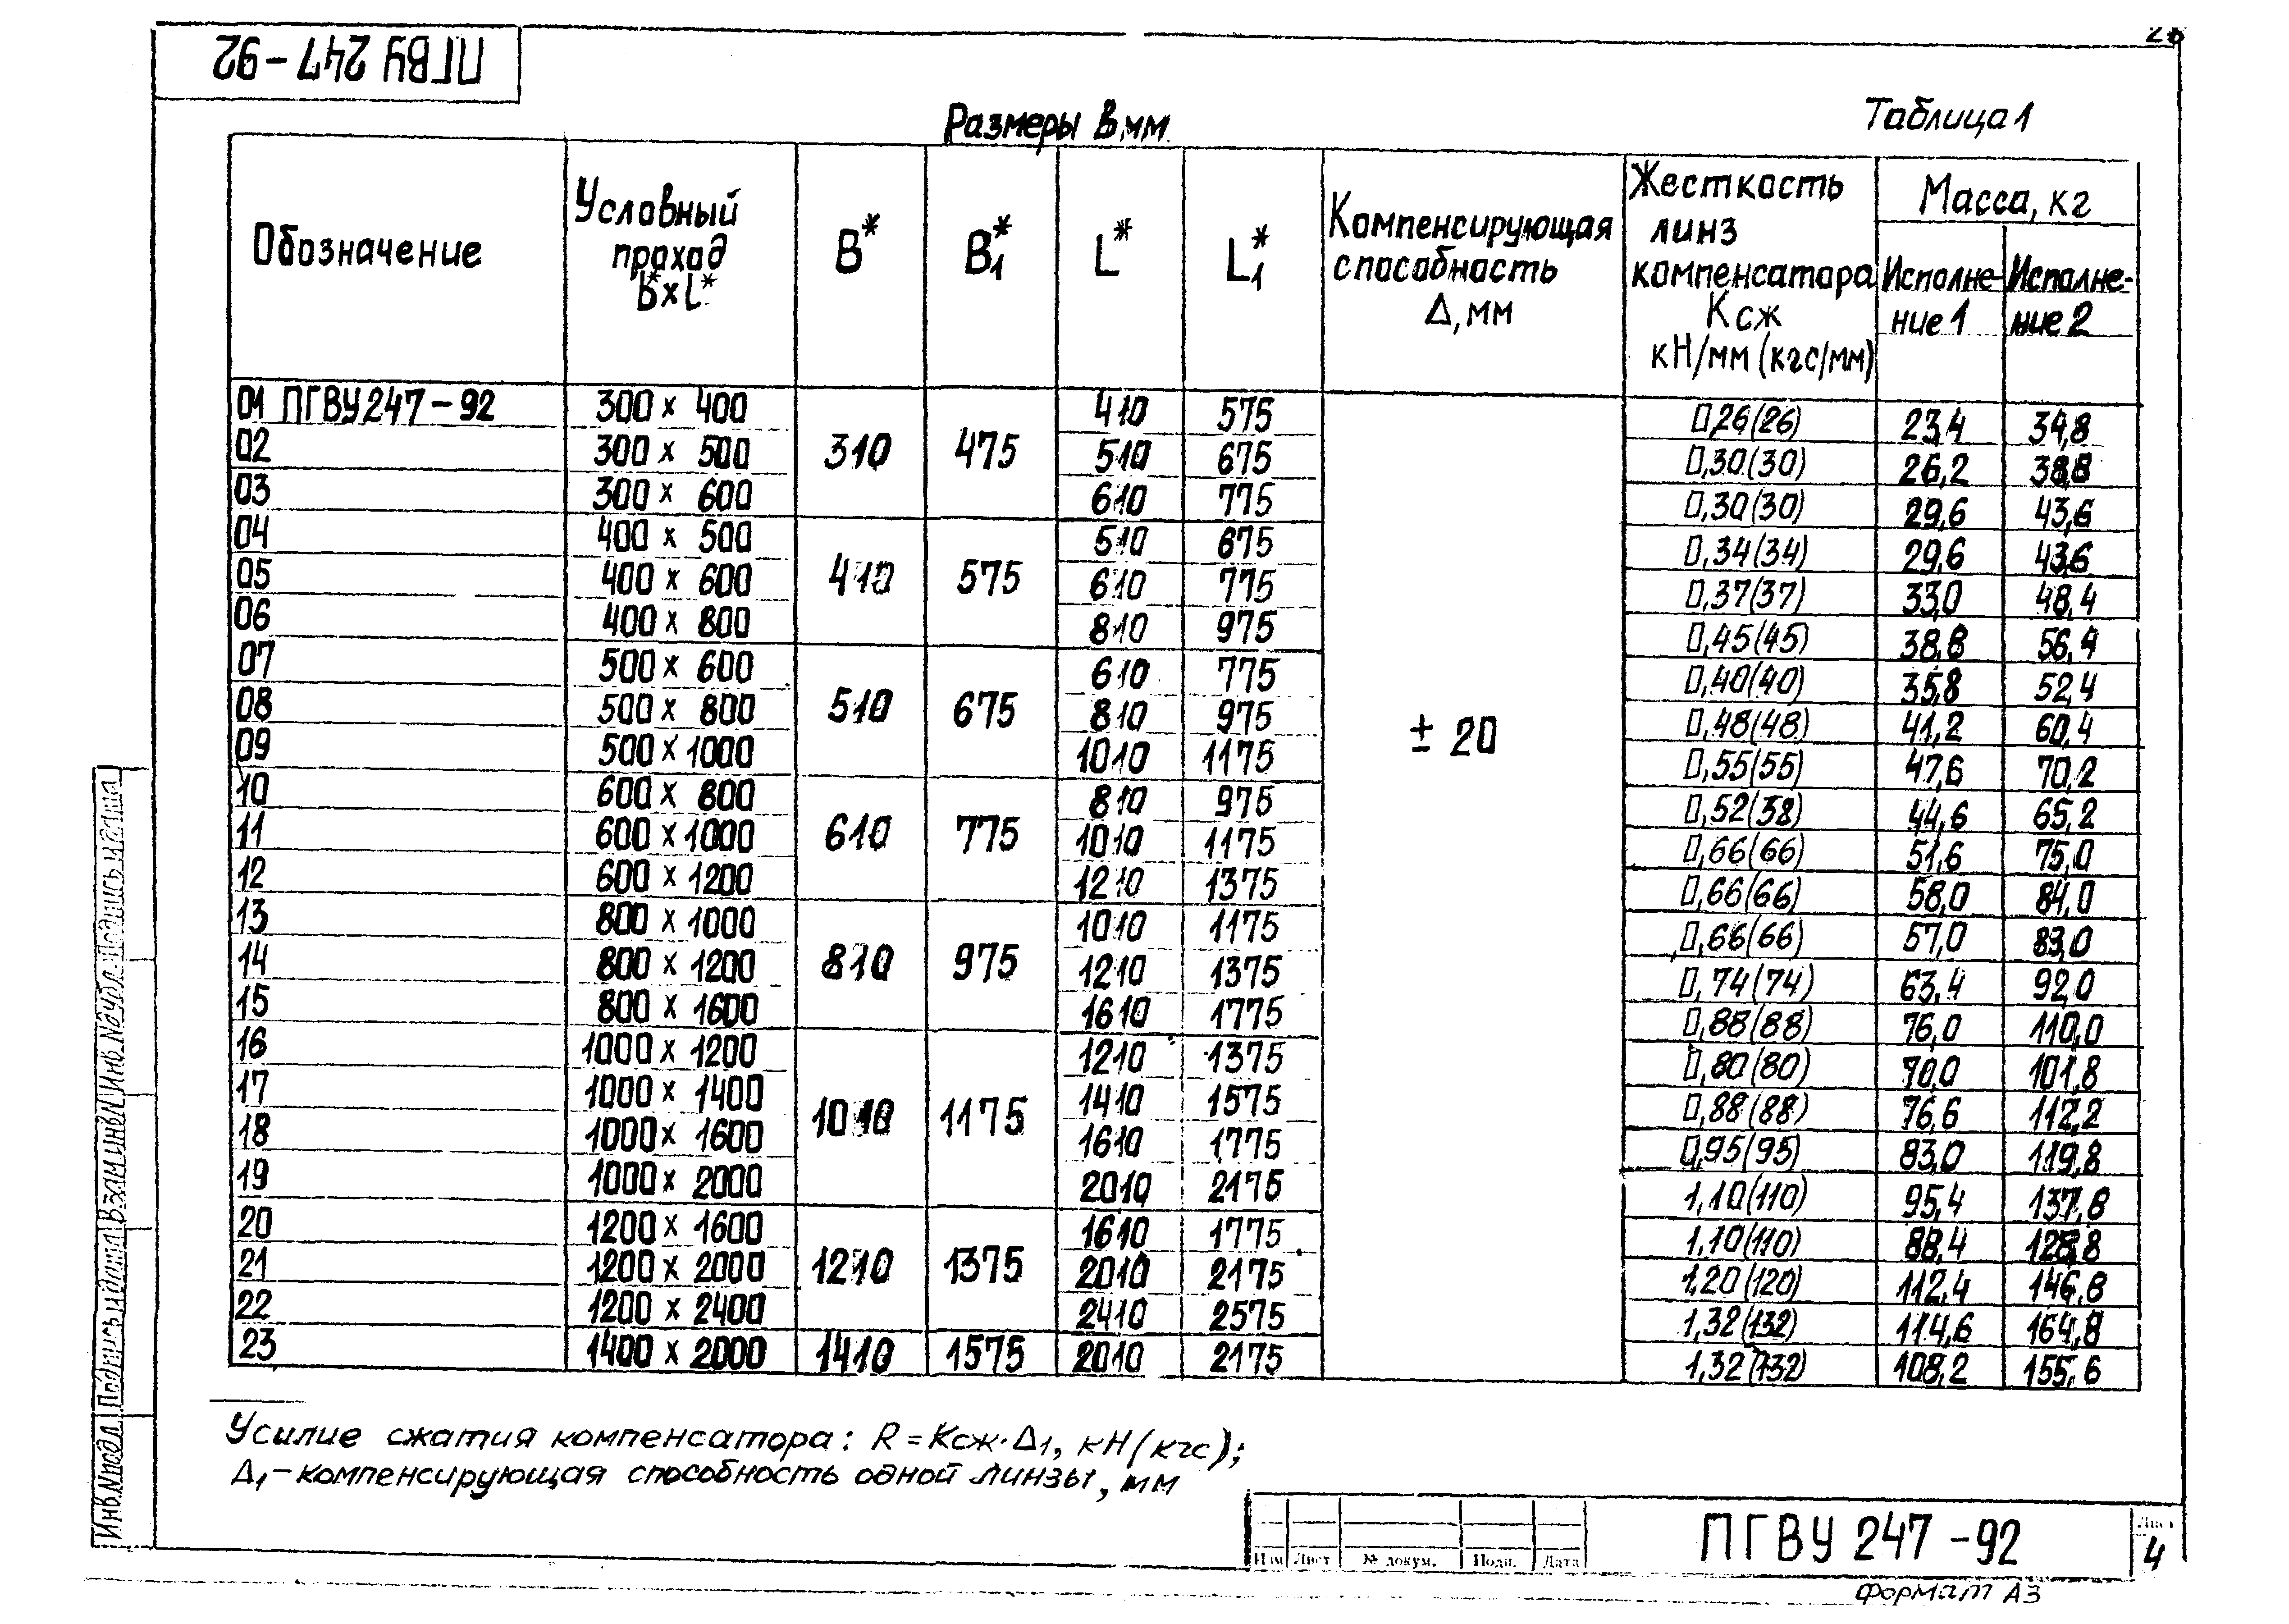 26
ПГВУ 247-92
Размеры в мм
Таблица 1
Обозначение
Условный проход B*xL*
B*
B₁*
L*
L₁*
Компенсирующая способность Δ, мм
Жесткость линз компенсатора Ксж кН/мм (кгс/мм)
Масса, кг
Исполне-ние 1
Исполне-ние 2
01 ПГВУ 247-92 300 x 400 310 475 410 575 ± 20 0,26(26) 23,4 34,8
02 300 x 500 510 675 0,30(30) 26,2 38,8
03 300 x 600 610 775 0,30(30) 29,6 43,6
04 400 x 500 410 575 510 675 0,34(34) 29,6 43,6
05 400 x 600 610 775 0,37(37) 33,0 48,4
06 400 x 800 810 975 0,45(45) 38,8 56,4
07 500 x 600 510 675 610 775 0,40(40) 35,8 52,4
08 500 x 800 810 975 0,48(48) 41,2 60,4
09 500 x 1000 1010 1175 0,55(55) 47,6 70,2
10 600 x 800 610 775 810 975 0,52(38) 44,6 65,2
11 600 x 1000 1010 1175 0,66(66) 51,6 75,0
12 600 x 1200 1210 1375 0,66(66) 58,0 84,0
13 800 x 1000 810 975 1010 1175 0,66(66) 57,0 83,0
14 800 x 1200 1210 1375 0,74(74) 63,4 92,0
15 800 x 1600 1610 1775 0,88(88) 76,0 110,0
16 1000 x 1200 1010 1175 1210 1375 0,80(80) 70,0 101,8
17 1000 x 1400 1410 1575 0,88(88) 76,6 112,2
18 1000 x 1600 1610 1775 0,95(95) 83,0 119,8
19 1000 x 2000 2010 2175 1,10(110) 95,4 137,8
20 1200 x 1600 1210 1375 1610 1775 1,10(110) 88,4 128,8
21 1200 x 2000 2010 2175 1,20(120) 112,4 146,8
22 1200 x 2400 2410 2575 1,32(132) 114,6 164,8
23 1400 x 2000 1410 1575 2010 2175 1,32(132) 108,2 155,6
Усилие сжатия компенсатора: R = Ксж·Δ₁, кН (кгс);
Δ₁-компенсирующая способность одной линзы, мм
Инв.№подл. Подпись и дата Взам.инв.№ Инв.№дубл. Подпись и дата
Изм Лист № докум. Подп. Дата
ПГВУ 247-92
Лист
4
формат А3